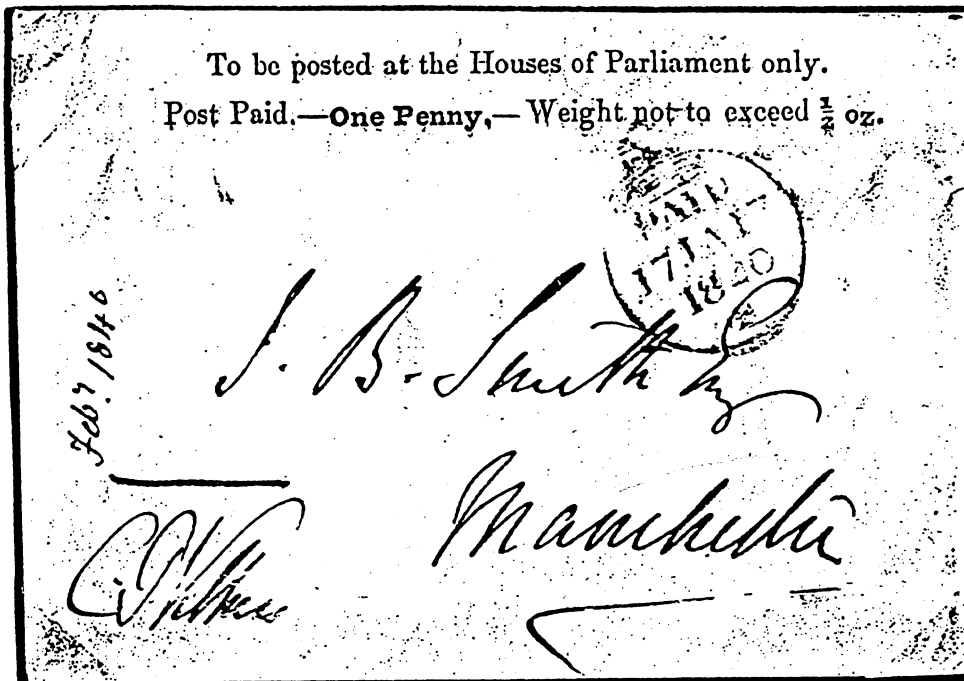 To be posted at the Houses of Parliament only.
Post Paid.—One Penny,— Weight not to exceed ½ oz.
PAID
17 JA 17
1840
J. B. Smith Esq
Manchester
Feby. 1840
C P Villiers